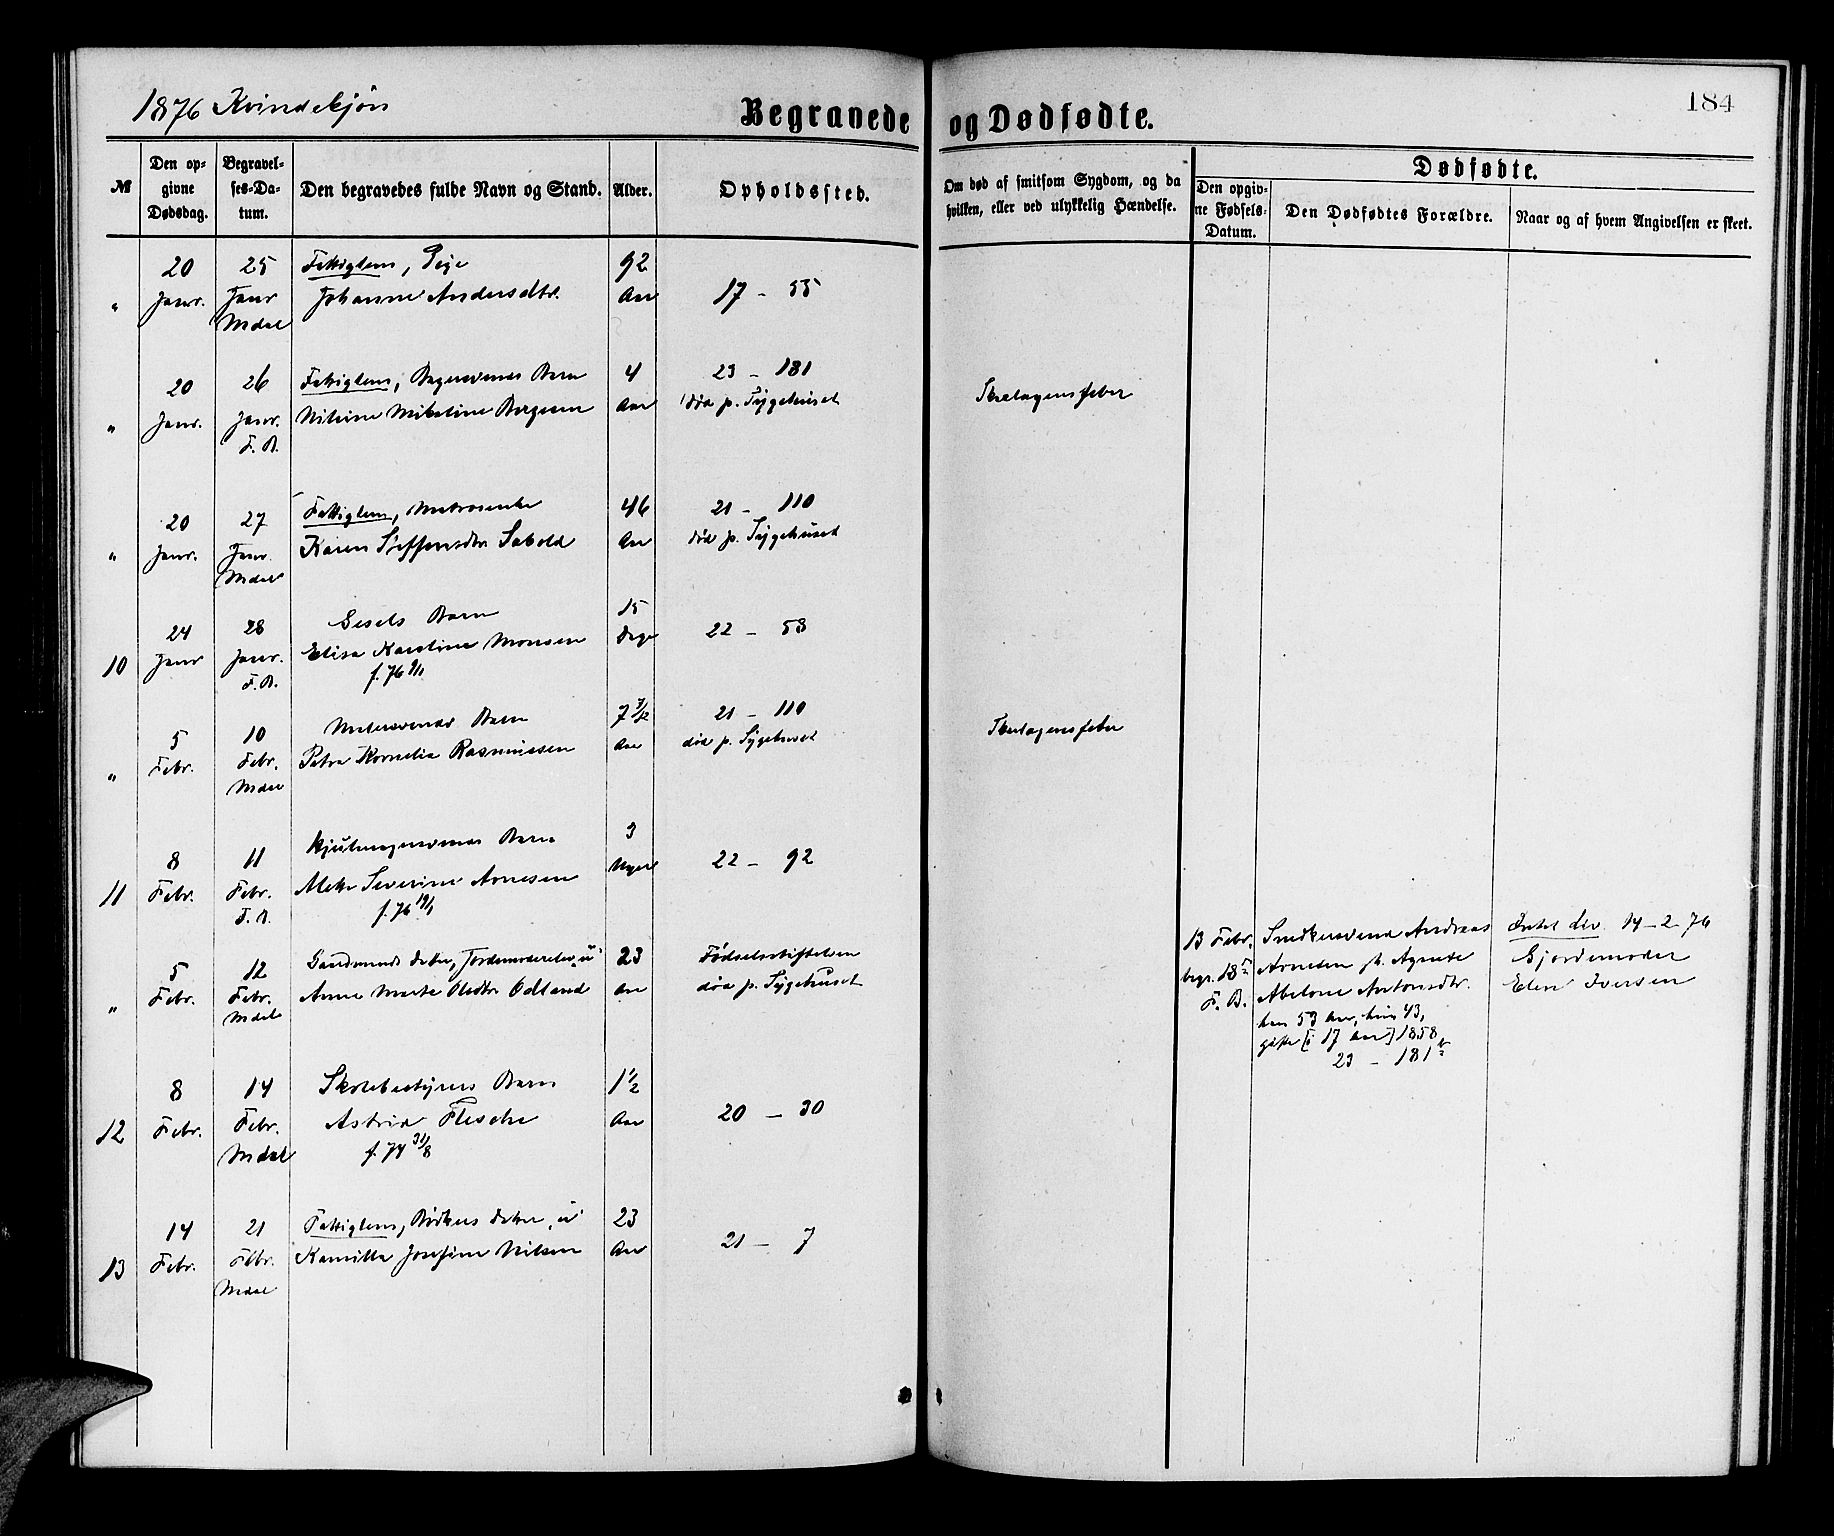 1876 Kvindekjøn
Begravede og Dødfødte.
184
№
Den opgivne Dødsdag.
Begravelses-Datum.
Den begravedes fulde Navn og Stand.
Alder.
Opholdssted.
Om død af smitsom Sygdom, og da hvilken, eller ved ulykkelig Hændelse.
Dødfødte.
Den opgivne Fødsels-Datum.
Den Dødfødtes Forældre.
Naar og af hvem Angivelsen er skeet.
" 20 Janr. 25 Janr Mdal
Fattiglem, Pige
Johanne Andersdtr.
92 Aar
17 - 55
" 20 Janr. 26 Janr. F. B.
Fattiglem, Bagersvends Barn
Nilsine Mikaline Borgesen
4 Aar
23 - 181
død p. Sygehuset
Skarlagensfeber
" 20 Janr. 27 Janr. Mdal
Fattiglem, Matrosenke
Karen Steffensdtr
46 Aar
21 - 110
død p. Sygehuset
10 24 Janr 28 Janr. F. B.
Gesels Barn
Elisa Karoline Monsen
f. 76 9/1
15 Dage
22 - 58
" 5 Febr. 10 Febr. Mdal
Malersvends Barn
Petra Kornelia Rasmussen
7 7/12 Aar
21 - 110
død p. Sygehuset
Skarlagensfeber
11 8 Febr. 11 Febr. F. B.
Hjulmagersvends Barn
Severine Arnesen
f. 76 19/1
3 Uger
22 - 92
" 5 Febr. 12 Febr. Mdal
Gaardmands Datter, Jordemoderelev, u
Anna Marta Olsdtr Odland
23 Aar
Fødselsstiftelsen
død p. Sygehuset
13 Febr.
begr. 18
F. B.
Snedkersvend Andreas
Arnesen og Agnete
Abelone Antonsdtr.
han 53 Aar, hun 43,
gifte [i 17 Aar] 1858
23 - 181
Intet lev. 14-2-76
Gjordemoder
Elen Iversen
12 8 Febr. 14 Febr. Mdal
Skolebestyrers Barn
Astrid Flesche
f. 74 31/8
1 1/2 Aar
20 - 30
13 14 Febr. 21 Febr. Mdal
Fattiglem, Bødkers Datter, u
Kamilla Josefine Nilsen
23 Aar
21 - 7